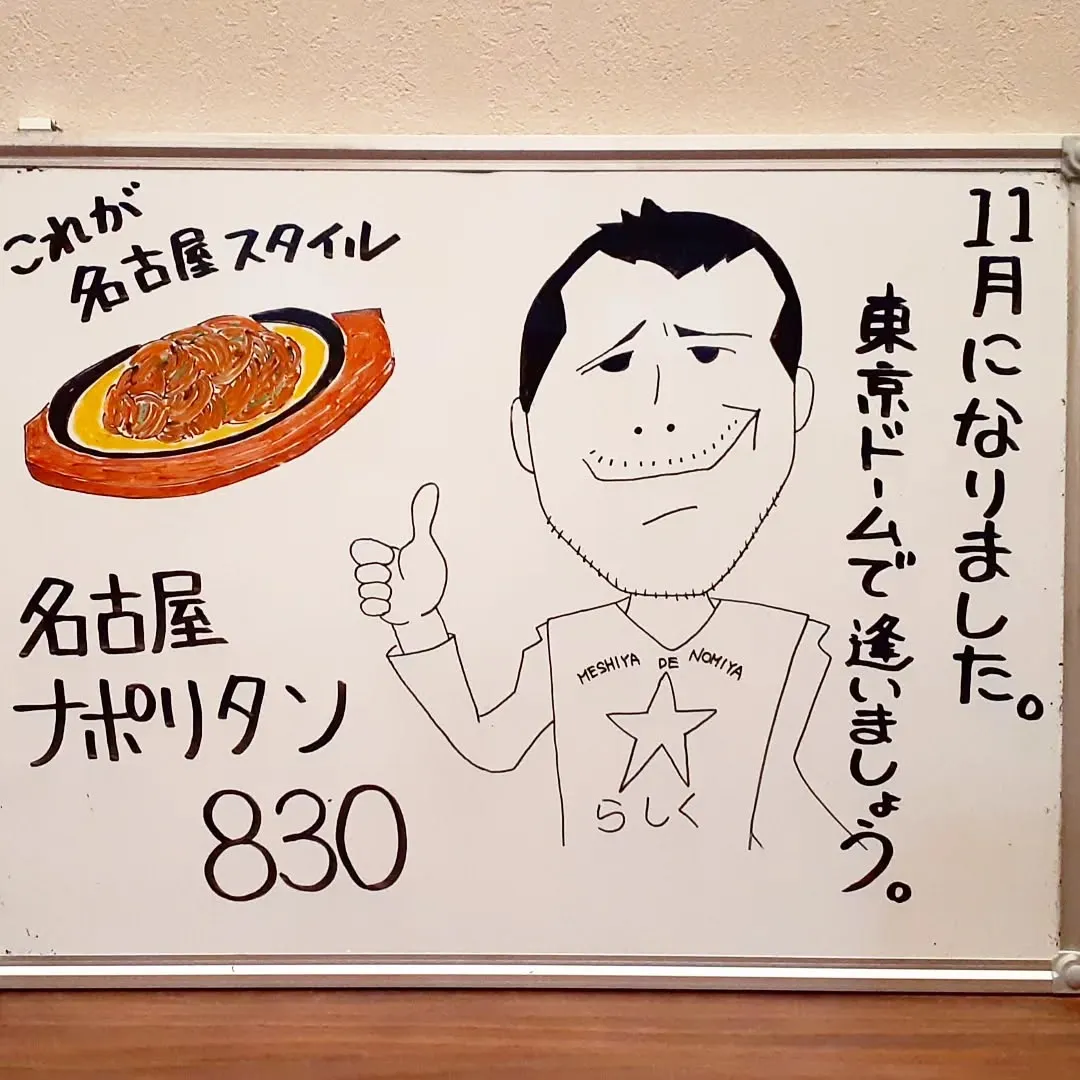 11月になりました。
東京ドームで逢いましょう。
これが
名古屋スタイル
名古屋
ナポリタン
830
MESHIYA DE NOMIYA
らしく